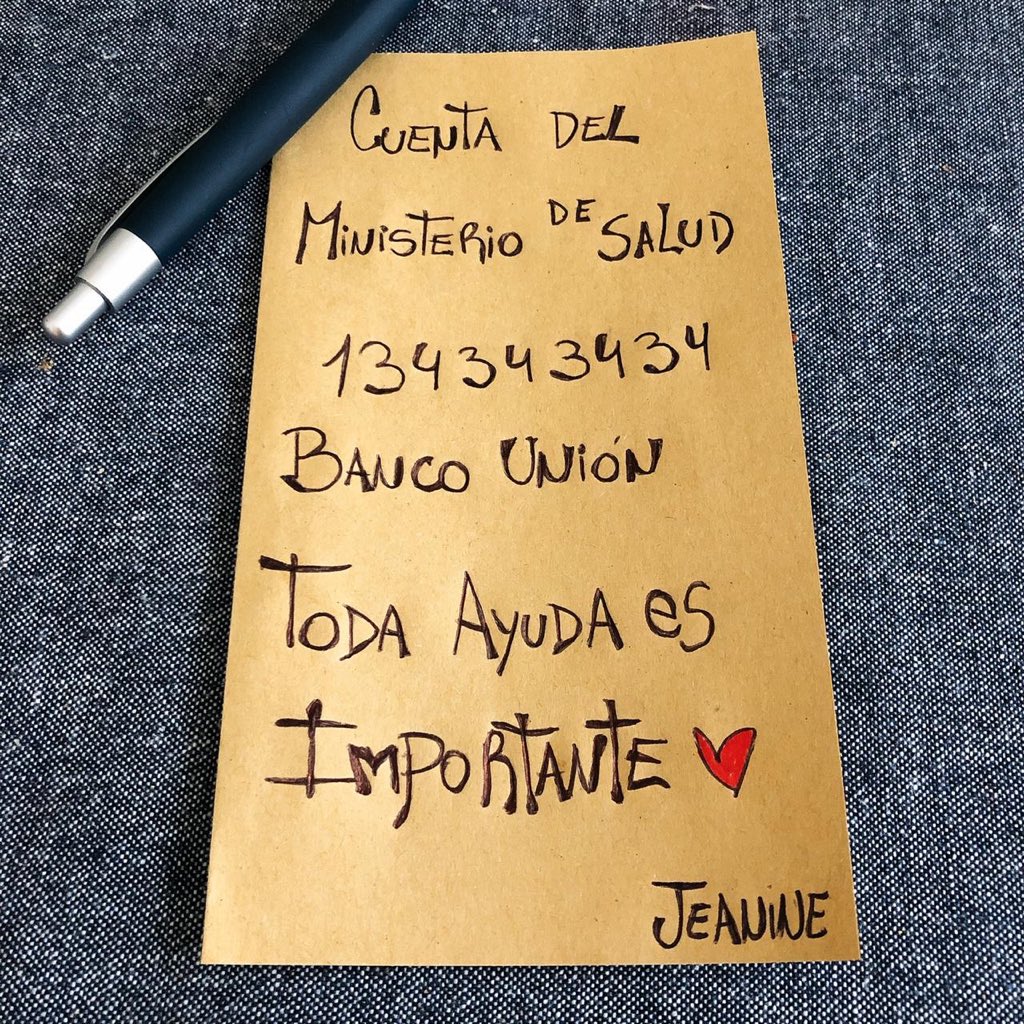 Cuenta del
Ministerio de Salud
1343434 34
Banco Unión
Toda Ayuda es
Importante
Jeanine